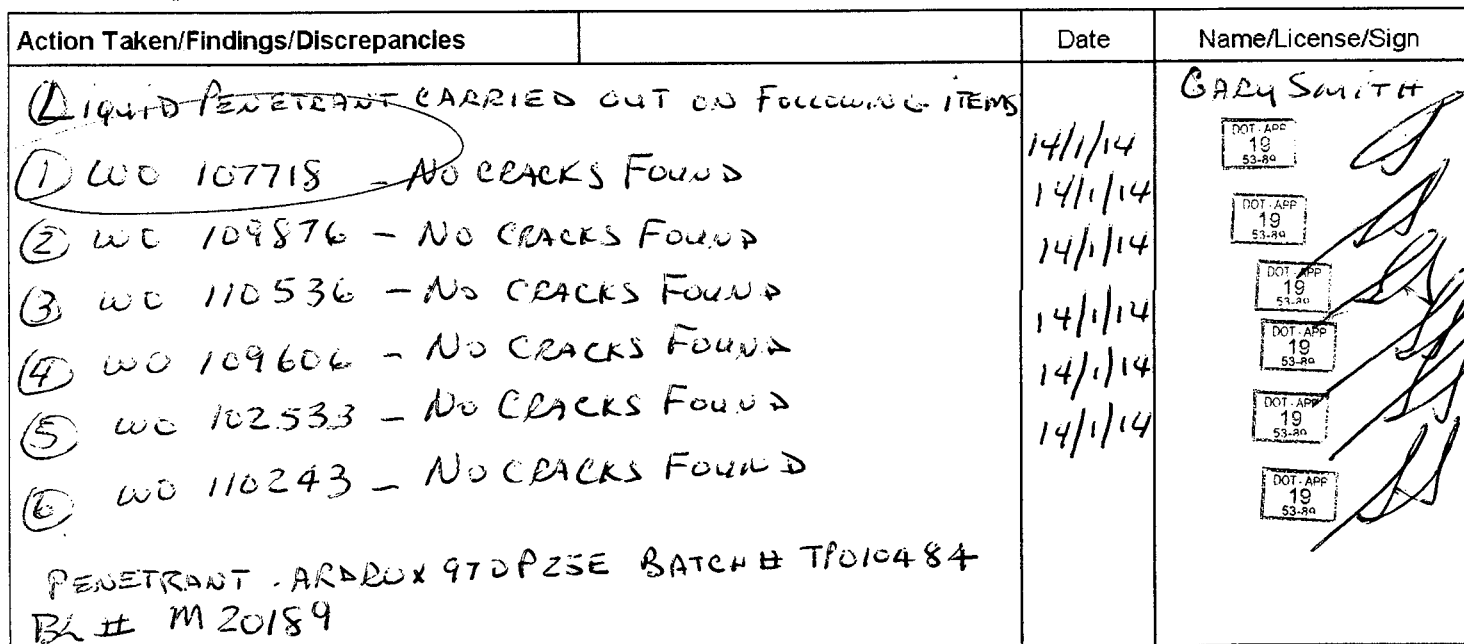 Action Taken/Findings/Discrepancies Date Name/License/Sign
LIQUID PENETRANT CARRIED OUT ON FOLLOWING ITEMS GARY SMITH
① WO 107718 - NO CRACKS FOUND 14/1/14 DOT-APP 19 53-89
② WO 109876 - NO CRACKS FOUND 14/1/14 DOT-APP 19 53-89
③ WO 110536 - NO CRACKS FOUND 14/1/14 DOT-APP 19 53-89
④ WO 109606 - NO CRACKS FOUND 14/1/14 DOT-APP 19 53-89
⑤ WO 102533 - NO CRACKS FOUND 14/1/14 DOT-APP 19 53-89
⑥ WO 110243 - NO CRACKS FOUND 14/1/14 DOT-APP 19 53-89
PENETRANT. ARDROX 970P25E BATCH # TP010484
BL # M20189